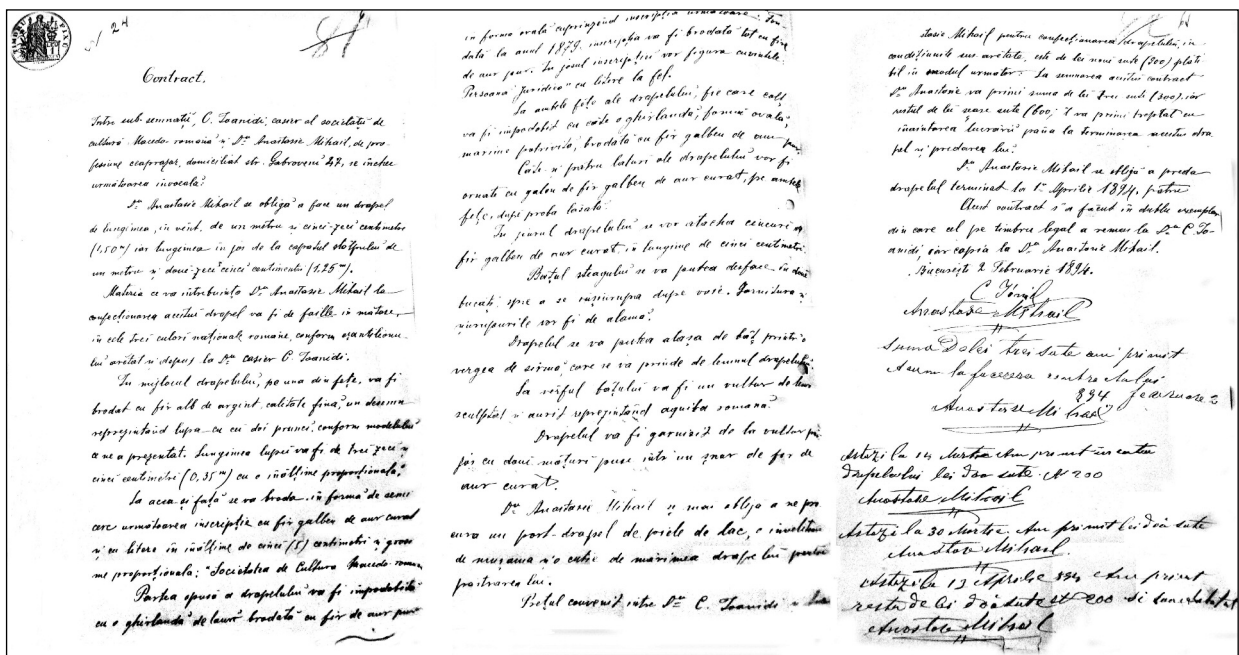 24
Contract.
Intre sub semnații, C. Ioanidi, casier al societății de
cultură Macedo-română și Dl Anastasie Mihail, de pro
fesiune ceaprazar, domiciliat str. Gabroveni 47, se incheie
următoarea invoeală:
Dl Anastasie Mihail se obligă a face un drapel
de lungimea, in vent, de un metru și cinci-zeci centimetri
(1,50 m) iar lungimea in jos de la capătul
un metru și două-zeci cinci centimetri (1,25 m).
Materia ce va intrebuința Dl Anastasie Mihail la
confecționarea acestui drapel va fi de faille in mătase,
in cele trei culori naționale române, conform eșantilionu
lui arătat și depus la Dl casier C. Ioanidi.
In mijlocul drapelului, pe una din fețe, va fi
brodat cu fir alb de argint, calitate fină, un desemn
represintând lupa cu cei doi prunci, conform modelului
ce ne a prezentat. Lungimea lupei va fi de trei-zeci și
cinci centimetri (0,35 m) cu o inălțime proporțională.
La acea și față se va broda in formă de semi
cerc următoarea inscripție cu fir galben de aur curat
și cu litere in inălțime de cinci (5) centimetri și grosi
me proporțională: "Societatea de Cultura Macedo-romana
Partea opusă a drapelului va fi impodobită
cu o ghirlandă de lauri brodată cu fir de aur pur
in forma ovală cuprinzênd inscripția urmatoare:
dată la anul 1879, inscripția va fi brodată tot cu fir
de aur pur. In josul inscripției vor figura cuvintele
Persoană Juridică cu litere la fel.
La ambele fețe ale drapelului, fie care colț
va fi impodobit cu câte o ghirlandă, formă ovală,
mărime potrivită, brodată cu fir galben de aur pur.
Câte și patru laturi ale drapelului vor fi
ornate cu galon de fir galben de aur curat, pe ambele
fețe, dupe proba lăsată.
In jurul drapelului se vor atacha ciucuri de
fir galben de aur curat, in lungime de cinci centimetri
Bățul steagului se va putea desface in două
bucăți, spre a se inșuruba dupe voie. Garnitura și
șurupurile vor fi de alamă.
Drapelul se va putea atașa de băț printr'o
vergea de sirmă, care se va prinde de lemnul drapelului.
La vârful bățului va fi un vultur de lemn
sculptat și aurit represintând aquila romană.
Drapelul va fi garnisit de la vultur in
jos cu doui mături puse intr'un șnur de fir de
aur curat.
Dl Anastasie Mihail se mai obligă a ne pro
cura un port-drapel de piele de lac, o invelitoare
de mușama și o cutie de mărimea drapelului pentru
păstrarea lui.
Prețul convenit intre Dl C. Ioanidi și
stasie Mihail pentru confecționarea drapelului, in
condițiunile sus arătate, este de lei noui sute (900) plăti
bil in modul următor: La semnarea acestui contract
Dl Anastasie va primi suma de lei trei sute (300), iar
restul de lei șease sute (600) 'l va primi treptat cu
inaintarea lucrării până la terminarea acestui dra
pel și predarea lui.
Dl Anastasie Mihail se obligă a preda
drapelul terminat la 1 Aprilie 1894.
Acest contract s'a făcut in dublu exemplar
din care cel pe timbru legal a remas la Dl C. Io-
anidi, iar copia la Dl Anastasie Mihail.
Bucuresti 2 Februarie 1894.
Anastase Mihail
Suma de lei trei sute am primit
Acum la facerea contractului
894 fevruarie 2
Anastase Mihail
Astezi la 14 Martie Am primit in contu
drapelului lei doo sute 200
Anastase Mihail
Astezi la 30 Martie Am primit lei doă sute
Anastase Mihail
Astezi la 13 Aprilie 894 Am primit
restu de lei doă sute 200 si
Anastase Mihail